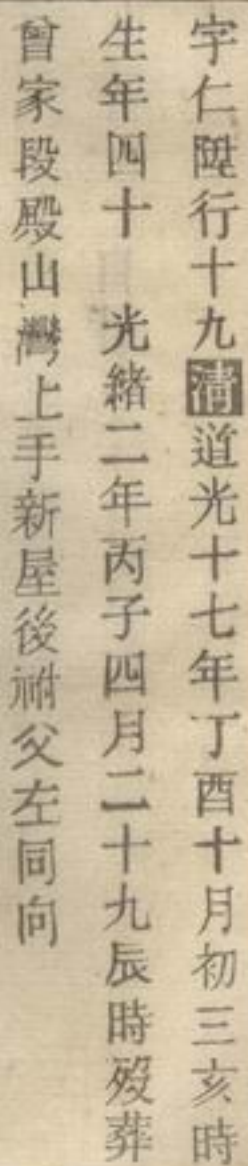 字仁陞行十九清道光十七年丁酉十月初三亥時
生年四十光緒二年丙子四月二十九辰時歿葬
曾家段殿山灣上手新屋後祔父左同向